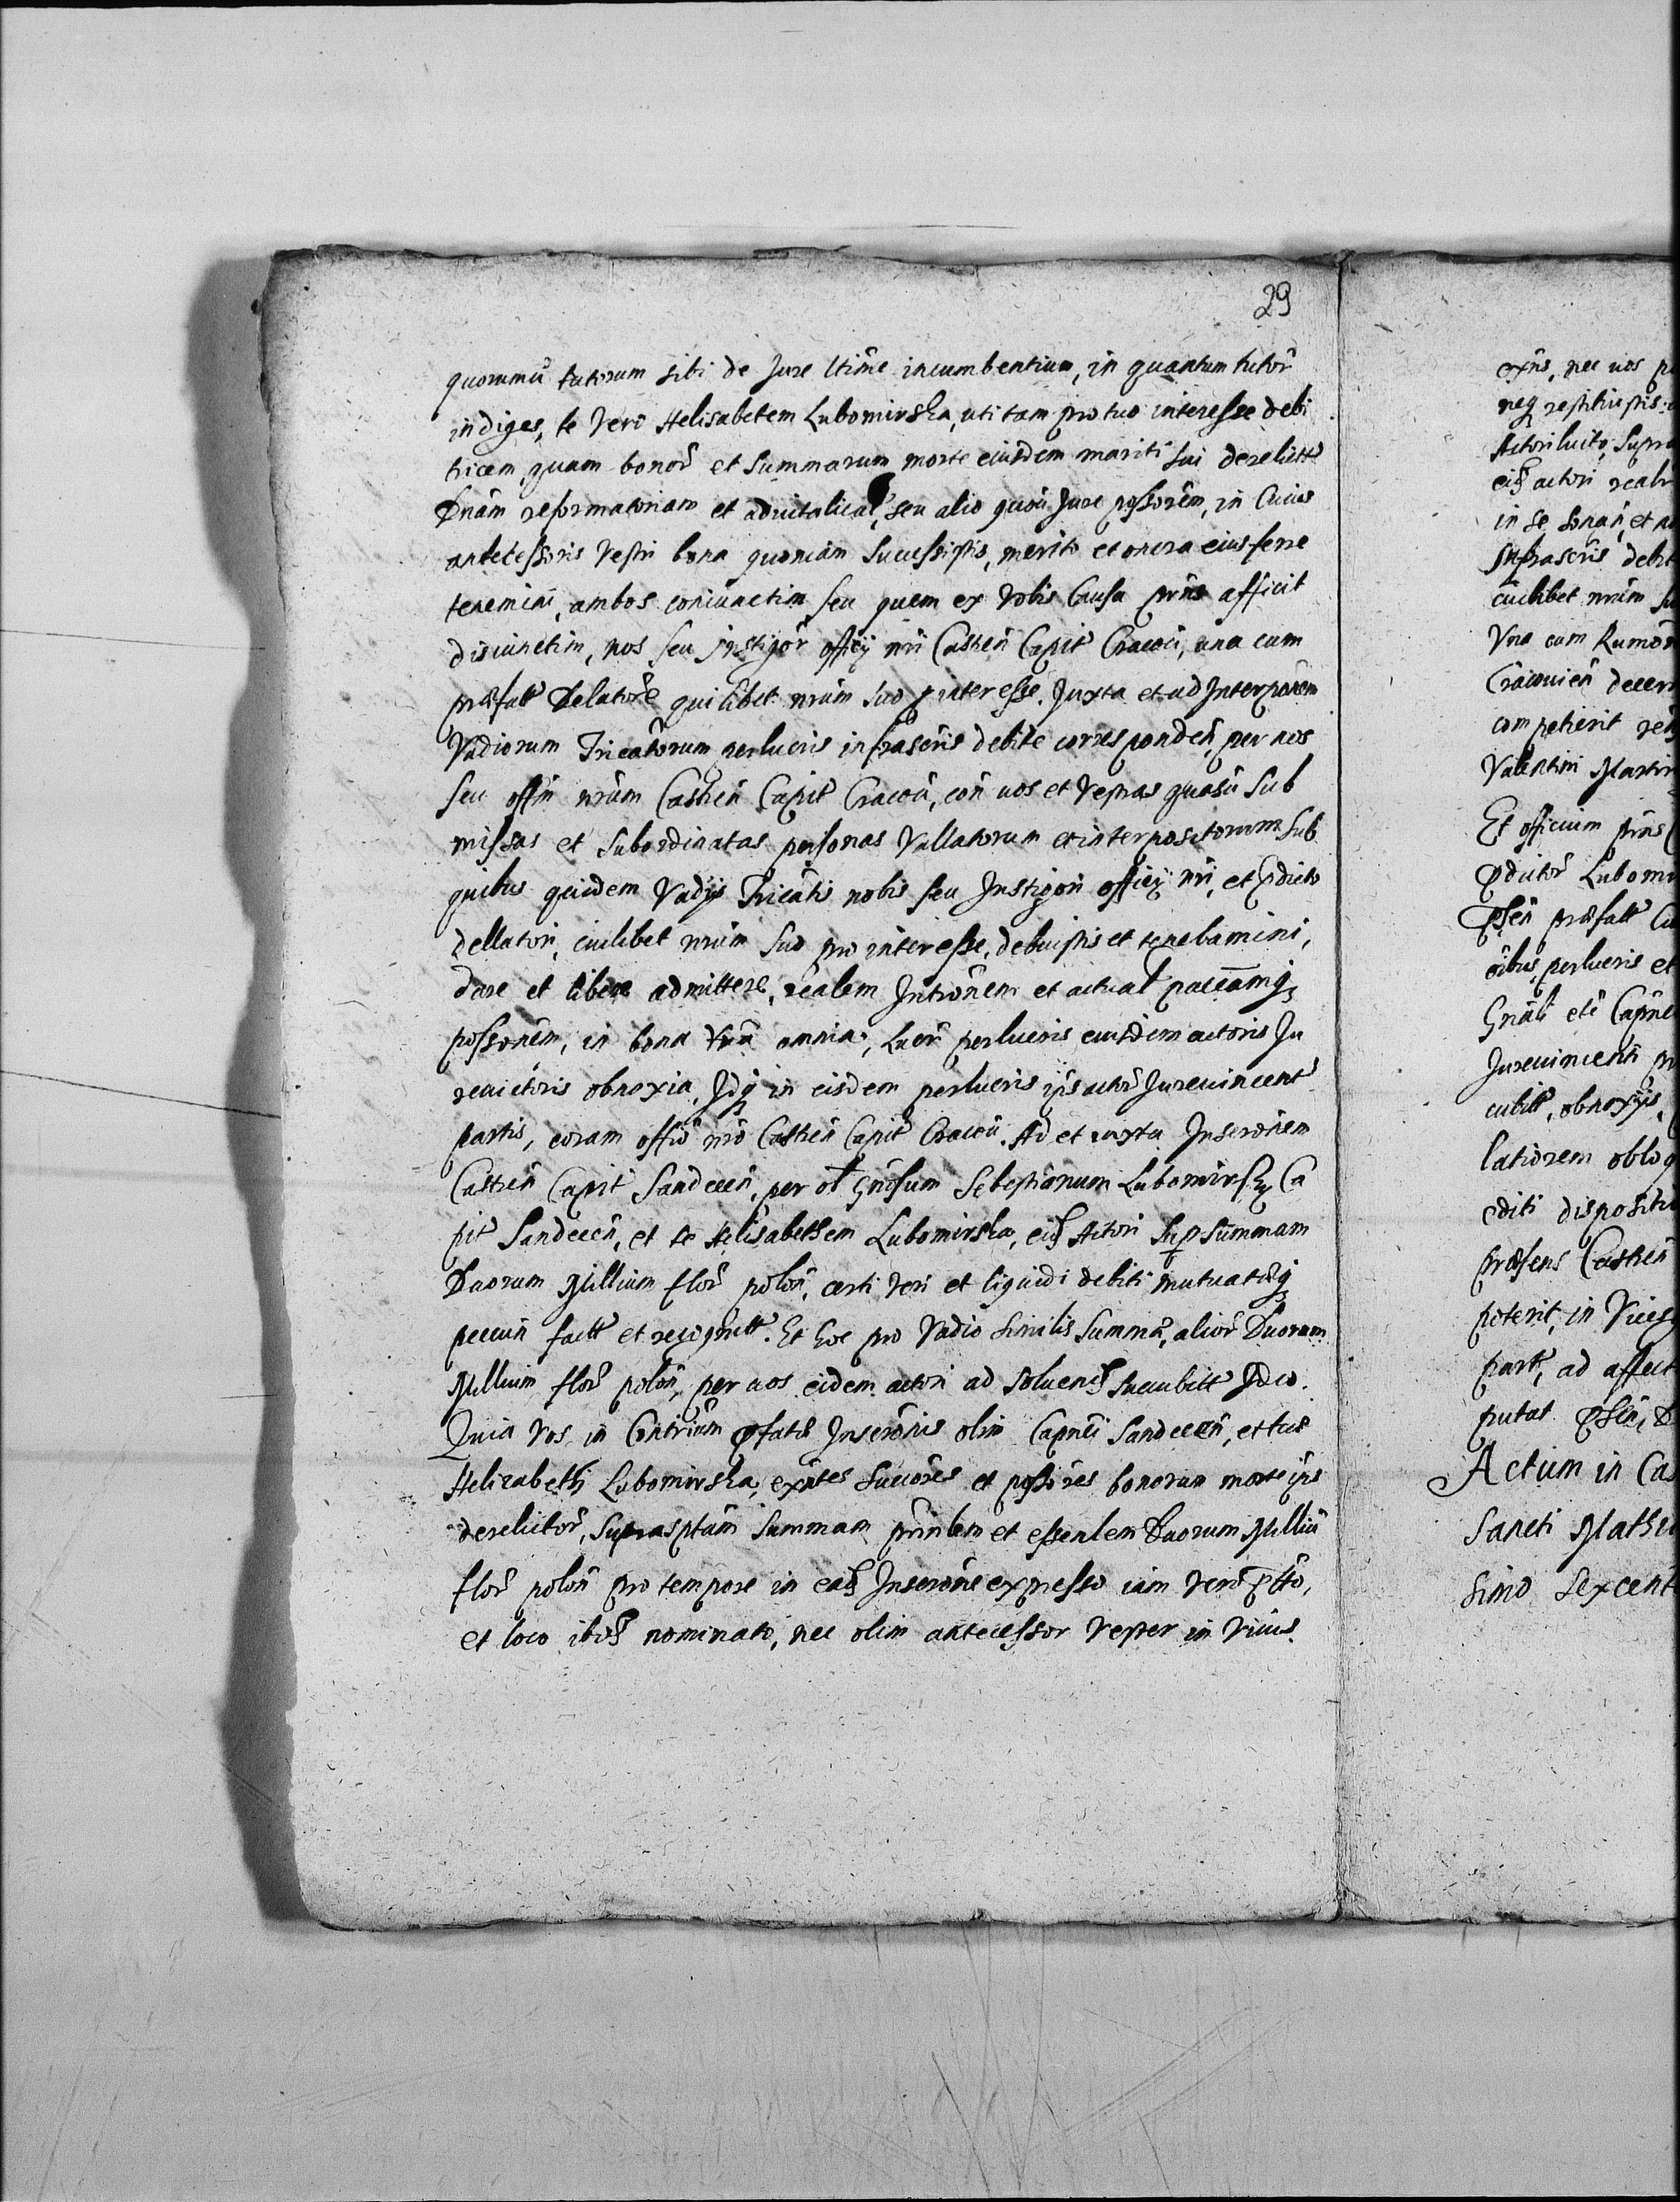 29
quorumuis tutorum sibi de Jure ltime incumbentium, in quantum tutor
indiges, te vero Helisabetem Lubomirska, uti tam pro tuo interesse debi
tricem quam bonor et Summarum morte eiusdem mariti sui derelict
Dnam reformatoriam et aduitalical, seu alio quouis Jure possorem, in Cuius
antecessoris vestri bona quoniam Successistis, merito et onera eius ferre
tenemini, ambos coniunctim seu quem ex vobis Causa prns afficit
disiunctim, nos seu Instigor officy nri Castren Capit Cracou, una cum
præfatt Delatore quilibet nrum suo p interesse. Juxta et ad Interponem
Vadiorum Tricatorum perlucris infrascris debite corresponden, per nos
seu offm nrum Castren Capit Cracou, con uos et vestras quasuis Sub
missas et Subordinatas personas Vallatorum et interpositorum sub
quibus quidem Vadys Tricatis nobis seu Instigori officy nri, et pdicto
dellatori, cuilibet nrum Suo pro interesse, debuistis et tenebamini,
dare et libere admittere, realem Intronem et actual pacamq
possonem, in bona vra omnia, Lucri perlucris eiusdem actoris Ju
reuictoris obnoxia, Idq in eisdem perlucris ips actor Jureuincent
partis, coram offio nro Castren Capit Cracou. Ad et juxta Inscronem
Castren Capit Sandecen, per ol Gnosum Sebestianum Lubomirsky Ca
pit Sandecen, et te Helisabethem Lubomirska, eid Actori Sup Summam
Duorum Millium flor polon, certi veri et liquidi debiti mutuatæq
pecun factt et recognitt. Et hoc pro Vadio similis Summæ, alior Duorum
Millium flor polon, per uos eidem actori ad soluend succubitt Ideo.
Quia vos in Contrium pfatæ Inscronis olim Capnei Sandecen, et tuæ
Helizabethi Lubomirska, exntes Succores et possores bonorum morte ips
derelictor, suprasptam Summam prinlem et essenlem Duorum Milliu
flor polon pro tempore in ead Inscrone expresso iam vero ptto,
et loco ibid nominato, nec olim antecessor vester in viuis
exns, nec uos
neq restituistis
Actori luito, Supra
eid actori
in se sonan, et
Infrascris debit
cuilibet nrum su
Vna cum
Cracouien decern
competierit
Valentini Martin
Et officium prns
pdictor Lubomir
præfatt
oibus perlucris et
Gnali
Jureuincenti
cubitt, obnoxys
latiorem
editi dispositi
præsens Castren
poterit, in
part, ad affect
putat
Actum in Cas
Sancti Mathi
simo Sexcent